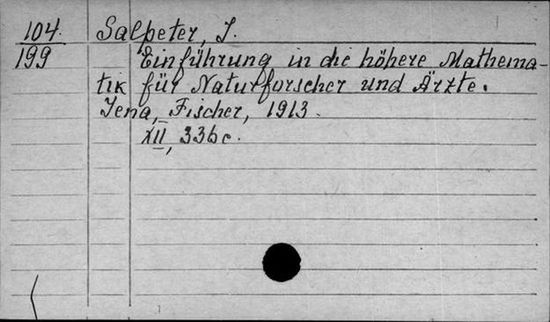 104. Salpeter, J.
199 Einführung in die höhere Mathema-
tik für Naturforscher und Ärzte.
Jena, Fischer, 1913.
XII, 336 c.